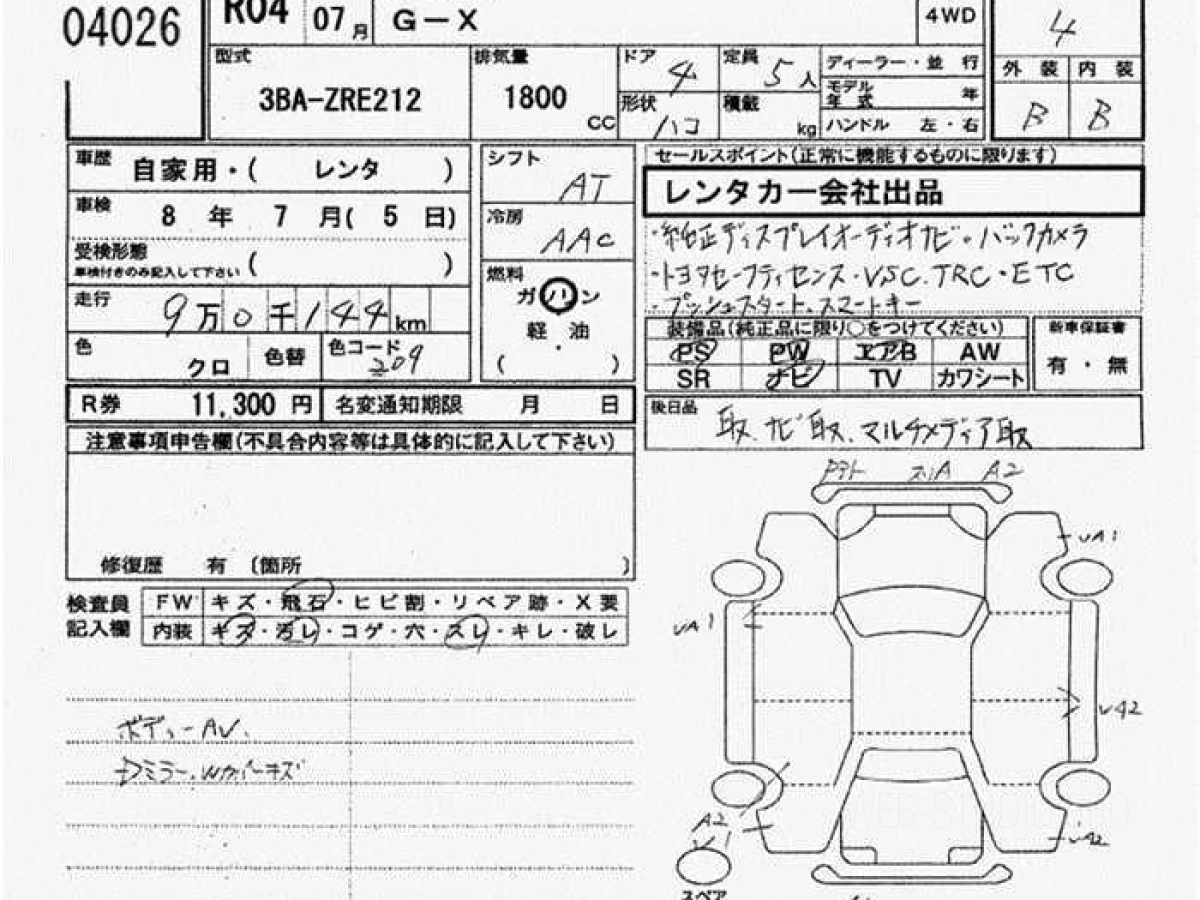 04026 R04 07月 G-X 4WD 4
型式 3BA-ZRE212 排気量 1800 CC
ドア 4 定員 5人 ディーラー・並行
形状 ハコ 積載 kg モデル年式 年
ハンドル 左・右
外装 内装
B B
車歴 自家用・( レンタ )
車検 8年 7月( 5日)
受検形態 車検付きのみ記入して下さい ( )
走行 9万0千144km
色 クロ 色替 色コード 209
シフト AT
冷房 AAC
燃料 ガソリン
軽油
( )
セールスポイント(正常に機能するものに限ります)
レンタカー会社出品
・純正ディスプレイオーディオナビ・バックカメラ
・トヨタセーフティセンス・VSC.TRC・ETC
・プッシュスタート.スマートキー
装備品(純正品に限り○をつけてください)
PS PW エアB AW
SR ナビ TV カワシート
新車保証書
有・無
R券 11,300円 名変通知期限 月 日
後日品 取、ナビ取、マルチメディア取
注意事項申告欄(不具合内容等は具体的に記入して下さい)
修復歴 有 〔箇所 〕
検査員記入欄
FW キズ・飛石・ヒビ割・リペア跡・X要
内装 キズ・汚レ・コゲ・穴・スレ・キレ・破レ
ボディーAV.
A2
VA1
VA1
V42
A2
V1
VA2
スペア